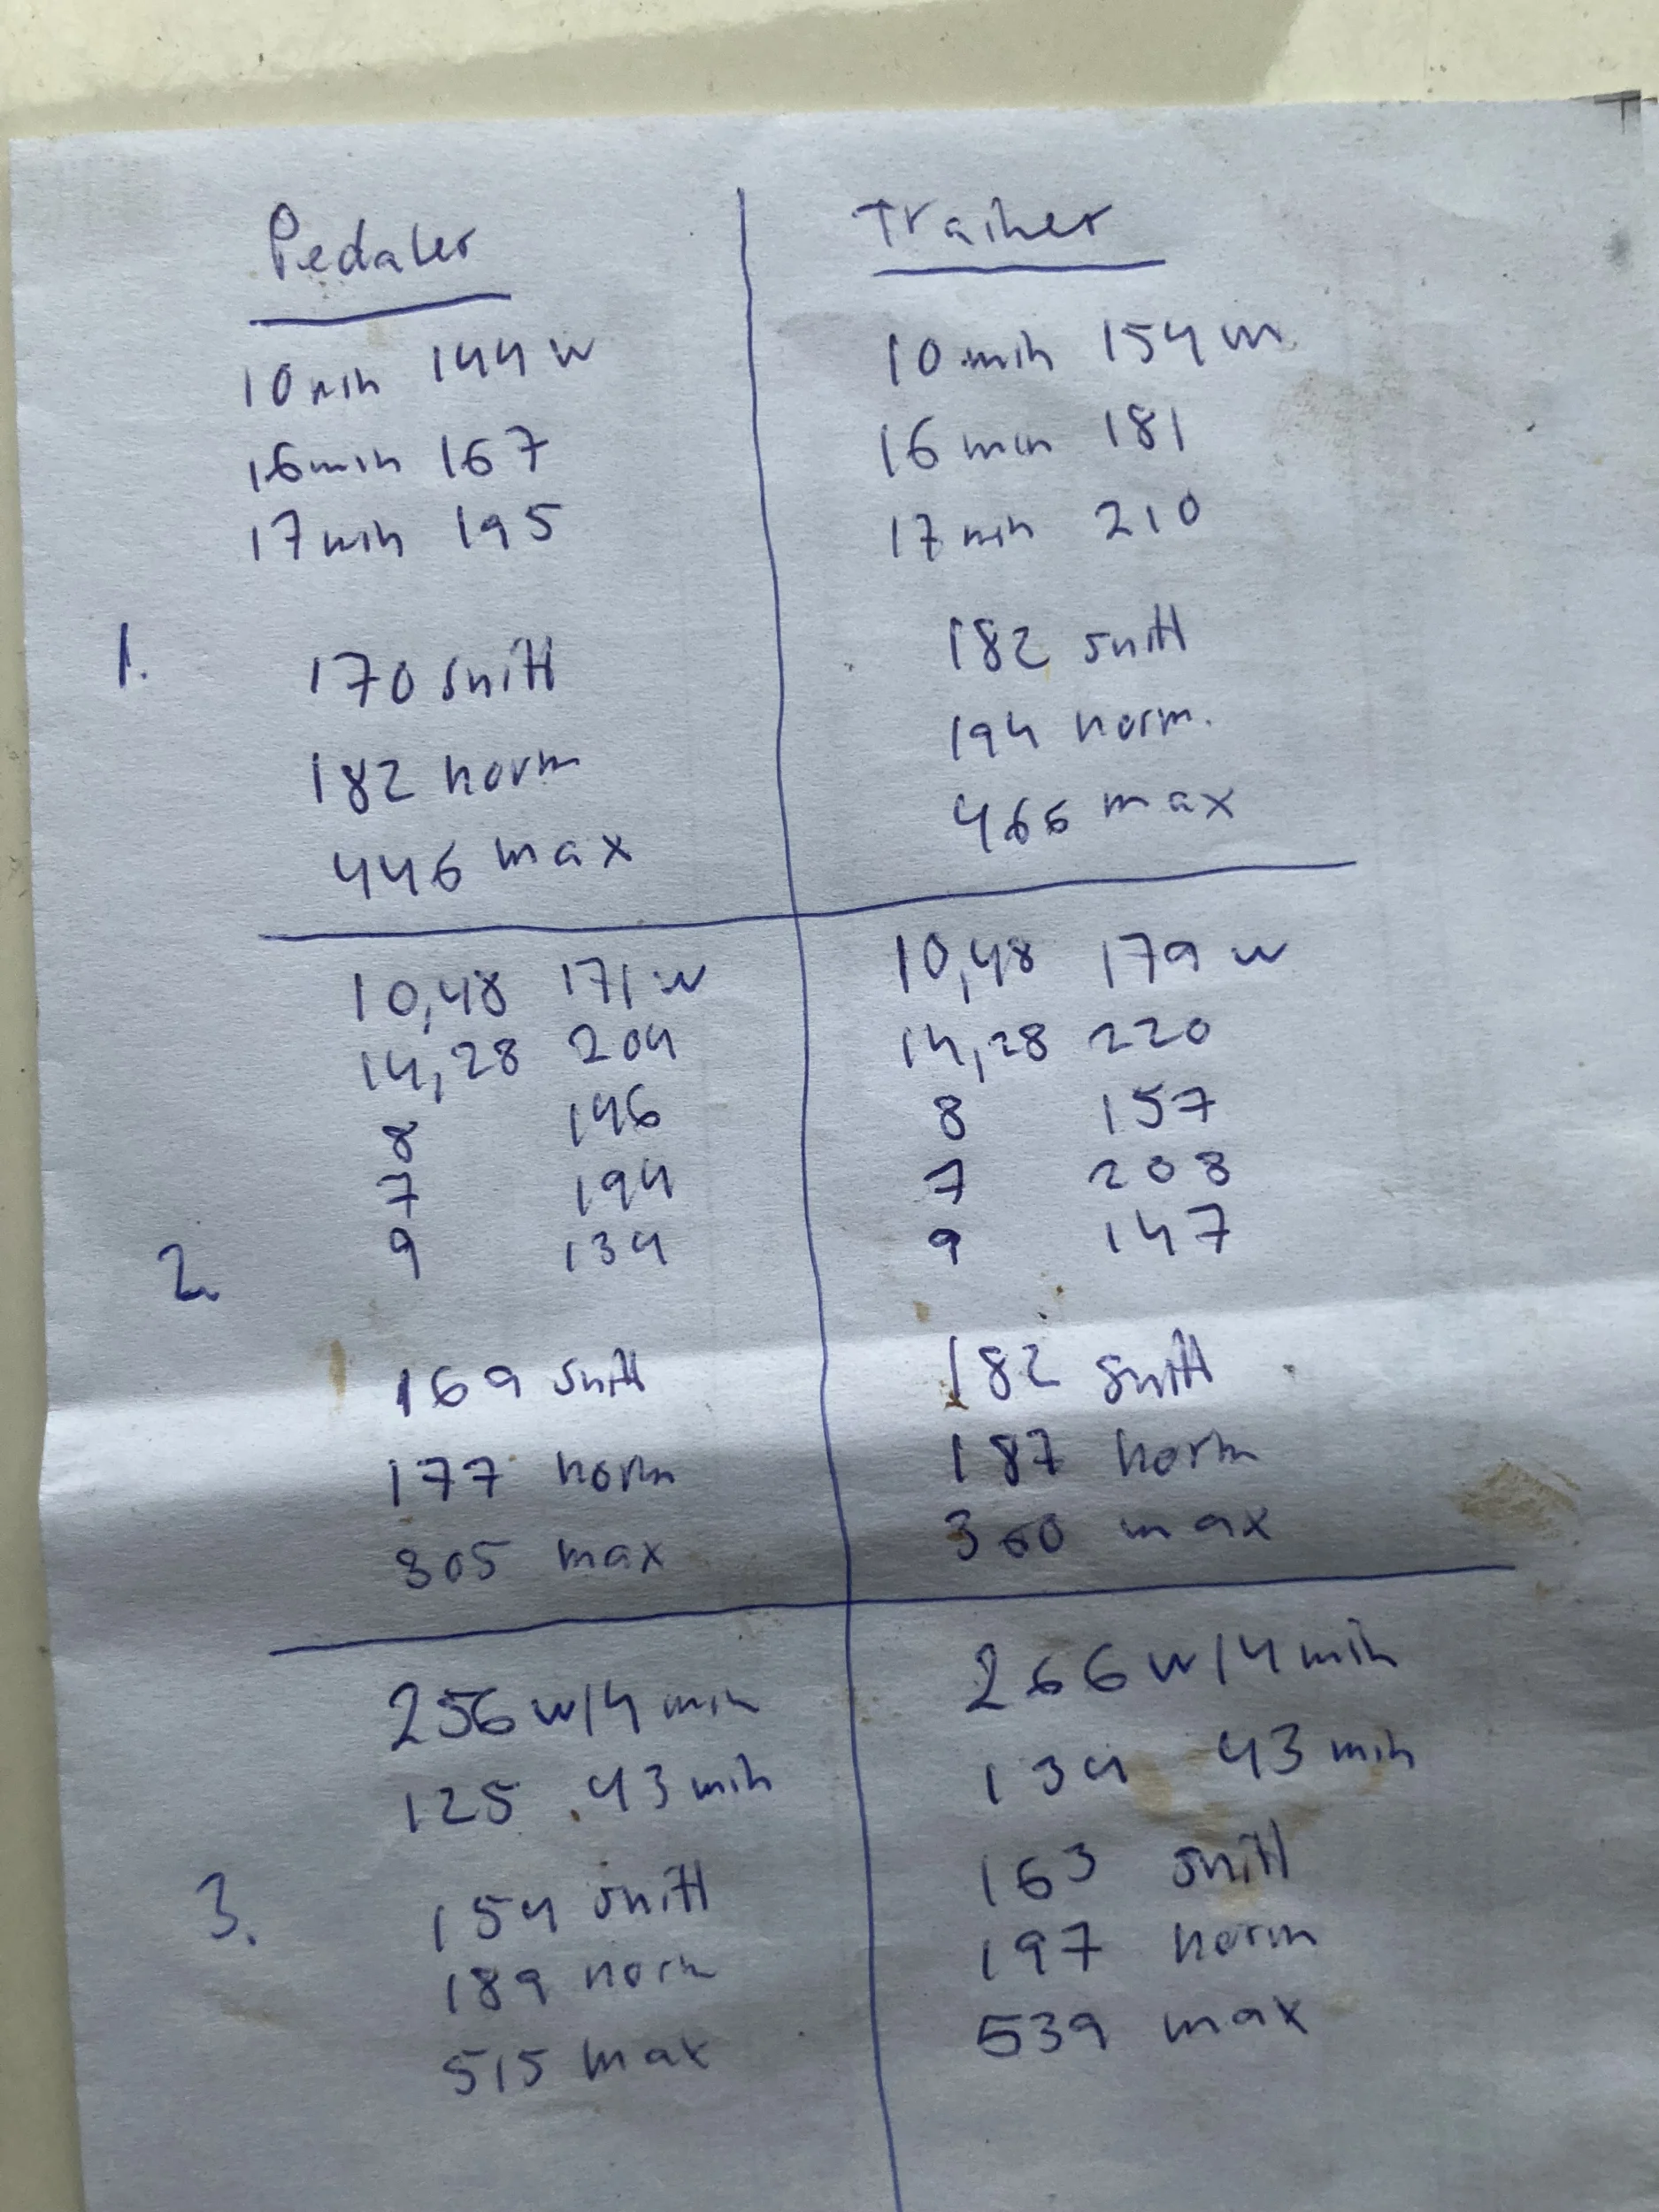 Pedaler
10 min 144 w
16 min 167
17 min 195
1.
170 snitt
182 norm
446 max
Trainer
10 min 154 w
16 min 181
17 min 210
182 snitt
194 norm.
466 max
10,48 171 w
14,28 204
8 146
7 194
9 134
2.
169 snitt
177 norm
305 max
10,48 179 w
14,28 220
8 157
7 208
9 147
182 snitt
187 norm
360 max
256 w/4 min
125 43 min
3.
154 snitt
189 norm
515 max
266 w/4 min
134 43 min
163 snitt
197 norm
539 max